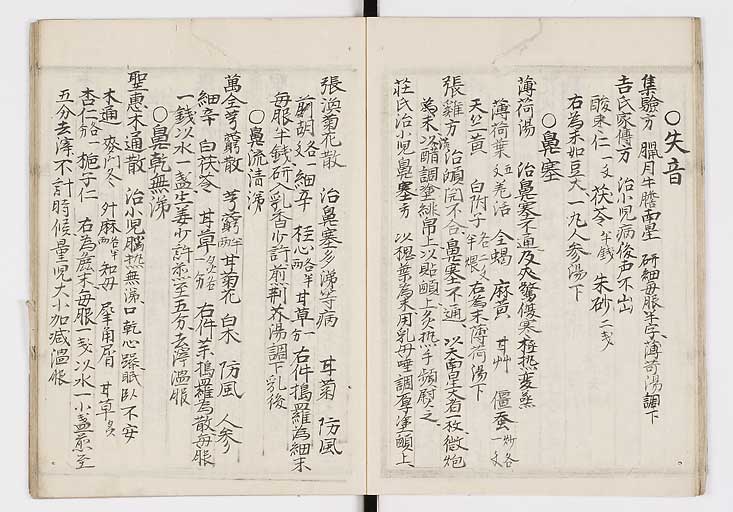 ○失音
集驗方 臘月牛膽南星 研細每服半字薄荷湯調下
吉氏家傳方 治小児病後声不出
酸棗仁一文 茯苓半錢 朱砂二戔
右為末如豆大一丸人参湯下
○鼻塞
薄荷湯 治鼻塞不通及夾驚傷寒極热変蒸
薄荷葉五文 羌活 全蝎 麻黄 甘艸 僵蚕一炒各一文
天竺黄 白附子各二文半煨 右為末薄荷湯下
張雞方 治顖開不合鼻塞不通 以天南星大者一枚微炮
為末以醋調塗緋帛上以貼顖上炙热手頻熨之
莊氏治小児鼻塞方 以槐葉為末用乳母唾調厚塗顖上
張渙菊花散 治鼻塞多涕等病 甘菊 防風
前胡各一 細辛 桂心各半両 甘草一分 右件搗羅為細末
每服半錢研入乳香少許煎荊芥湯調下乳後
○鼻流清涕
萬全芎藭散 芎藭半両 甘菊花 白朮 防風 人参
細辛 白茯苓 甘草各一分 右件搗羅為散每服
一錢以水一盞生姜少許煎至五分去滓温服
○鼻乾無涕
聖惠木通散 治小児腦热無涕口乾心躁眠臥不安
木通 麥门冬 升麻各半両 知母 犀角屑 甘草炙
杏仁各一分 梔子仁 右為麁末每服一戔以水一小盞煎至
五分去滓不計時候量児大小加减温服